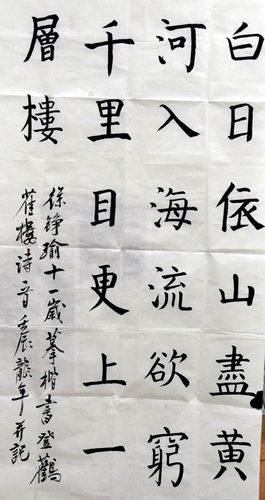 白日依山盡黄
河入海流欲窮
千里目更上一
層樓
徐錚瑜十一歲摹楷書登鸛
雀樓詩一首壬辰龍年并記